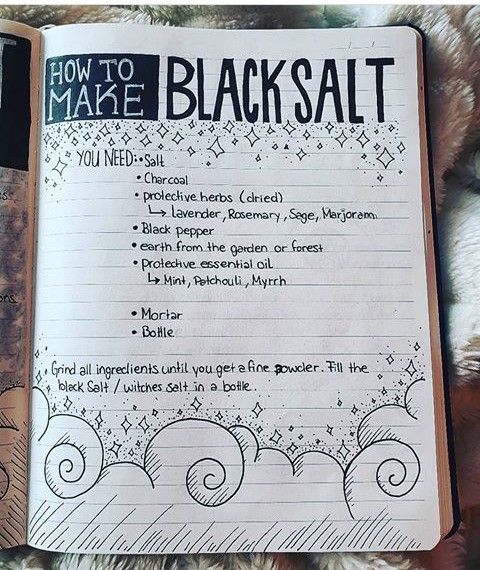 HOW TO
MAKE
BLACK SALT
YOU NEED:
• Salt
• Charcoal
• protective herbs (dried)
↳ lavender, Rosemary, Sage, Marjoram
• Black pepper
• earth from the garden or forest
• protective essential oil
↳ Mint, Patchouli, Myrrh
• Mortar
• Bottle
• Grind all ingredients until you get a fine powder. Fill the
black Salt / witches salt in a bottle.